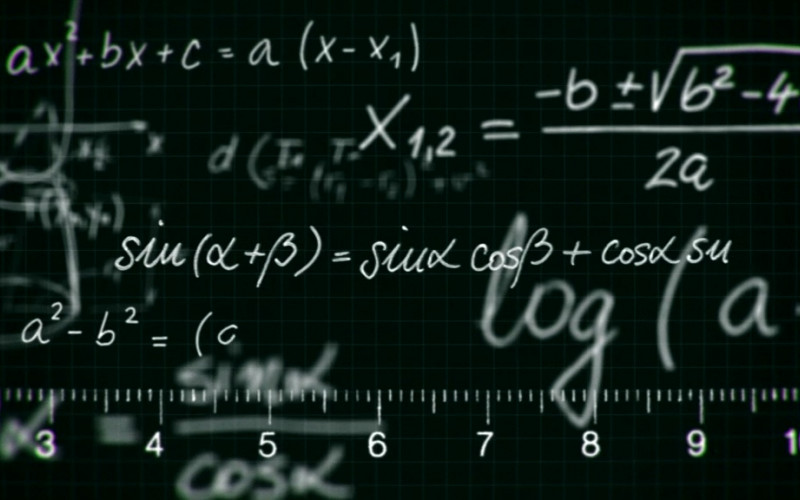 ax²+bx+c = a (x-x₁)
X₁,₂ = -b ±√b²-4
2a
sin(α+β) = sinα cosβ + cosα su
log ( a
a²-b² = (c
sinα
=
cosα
3 4 5 6 7 8 9 1